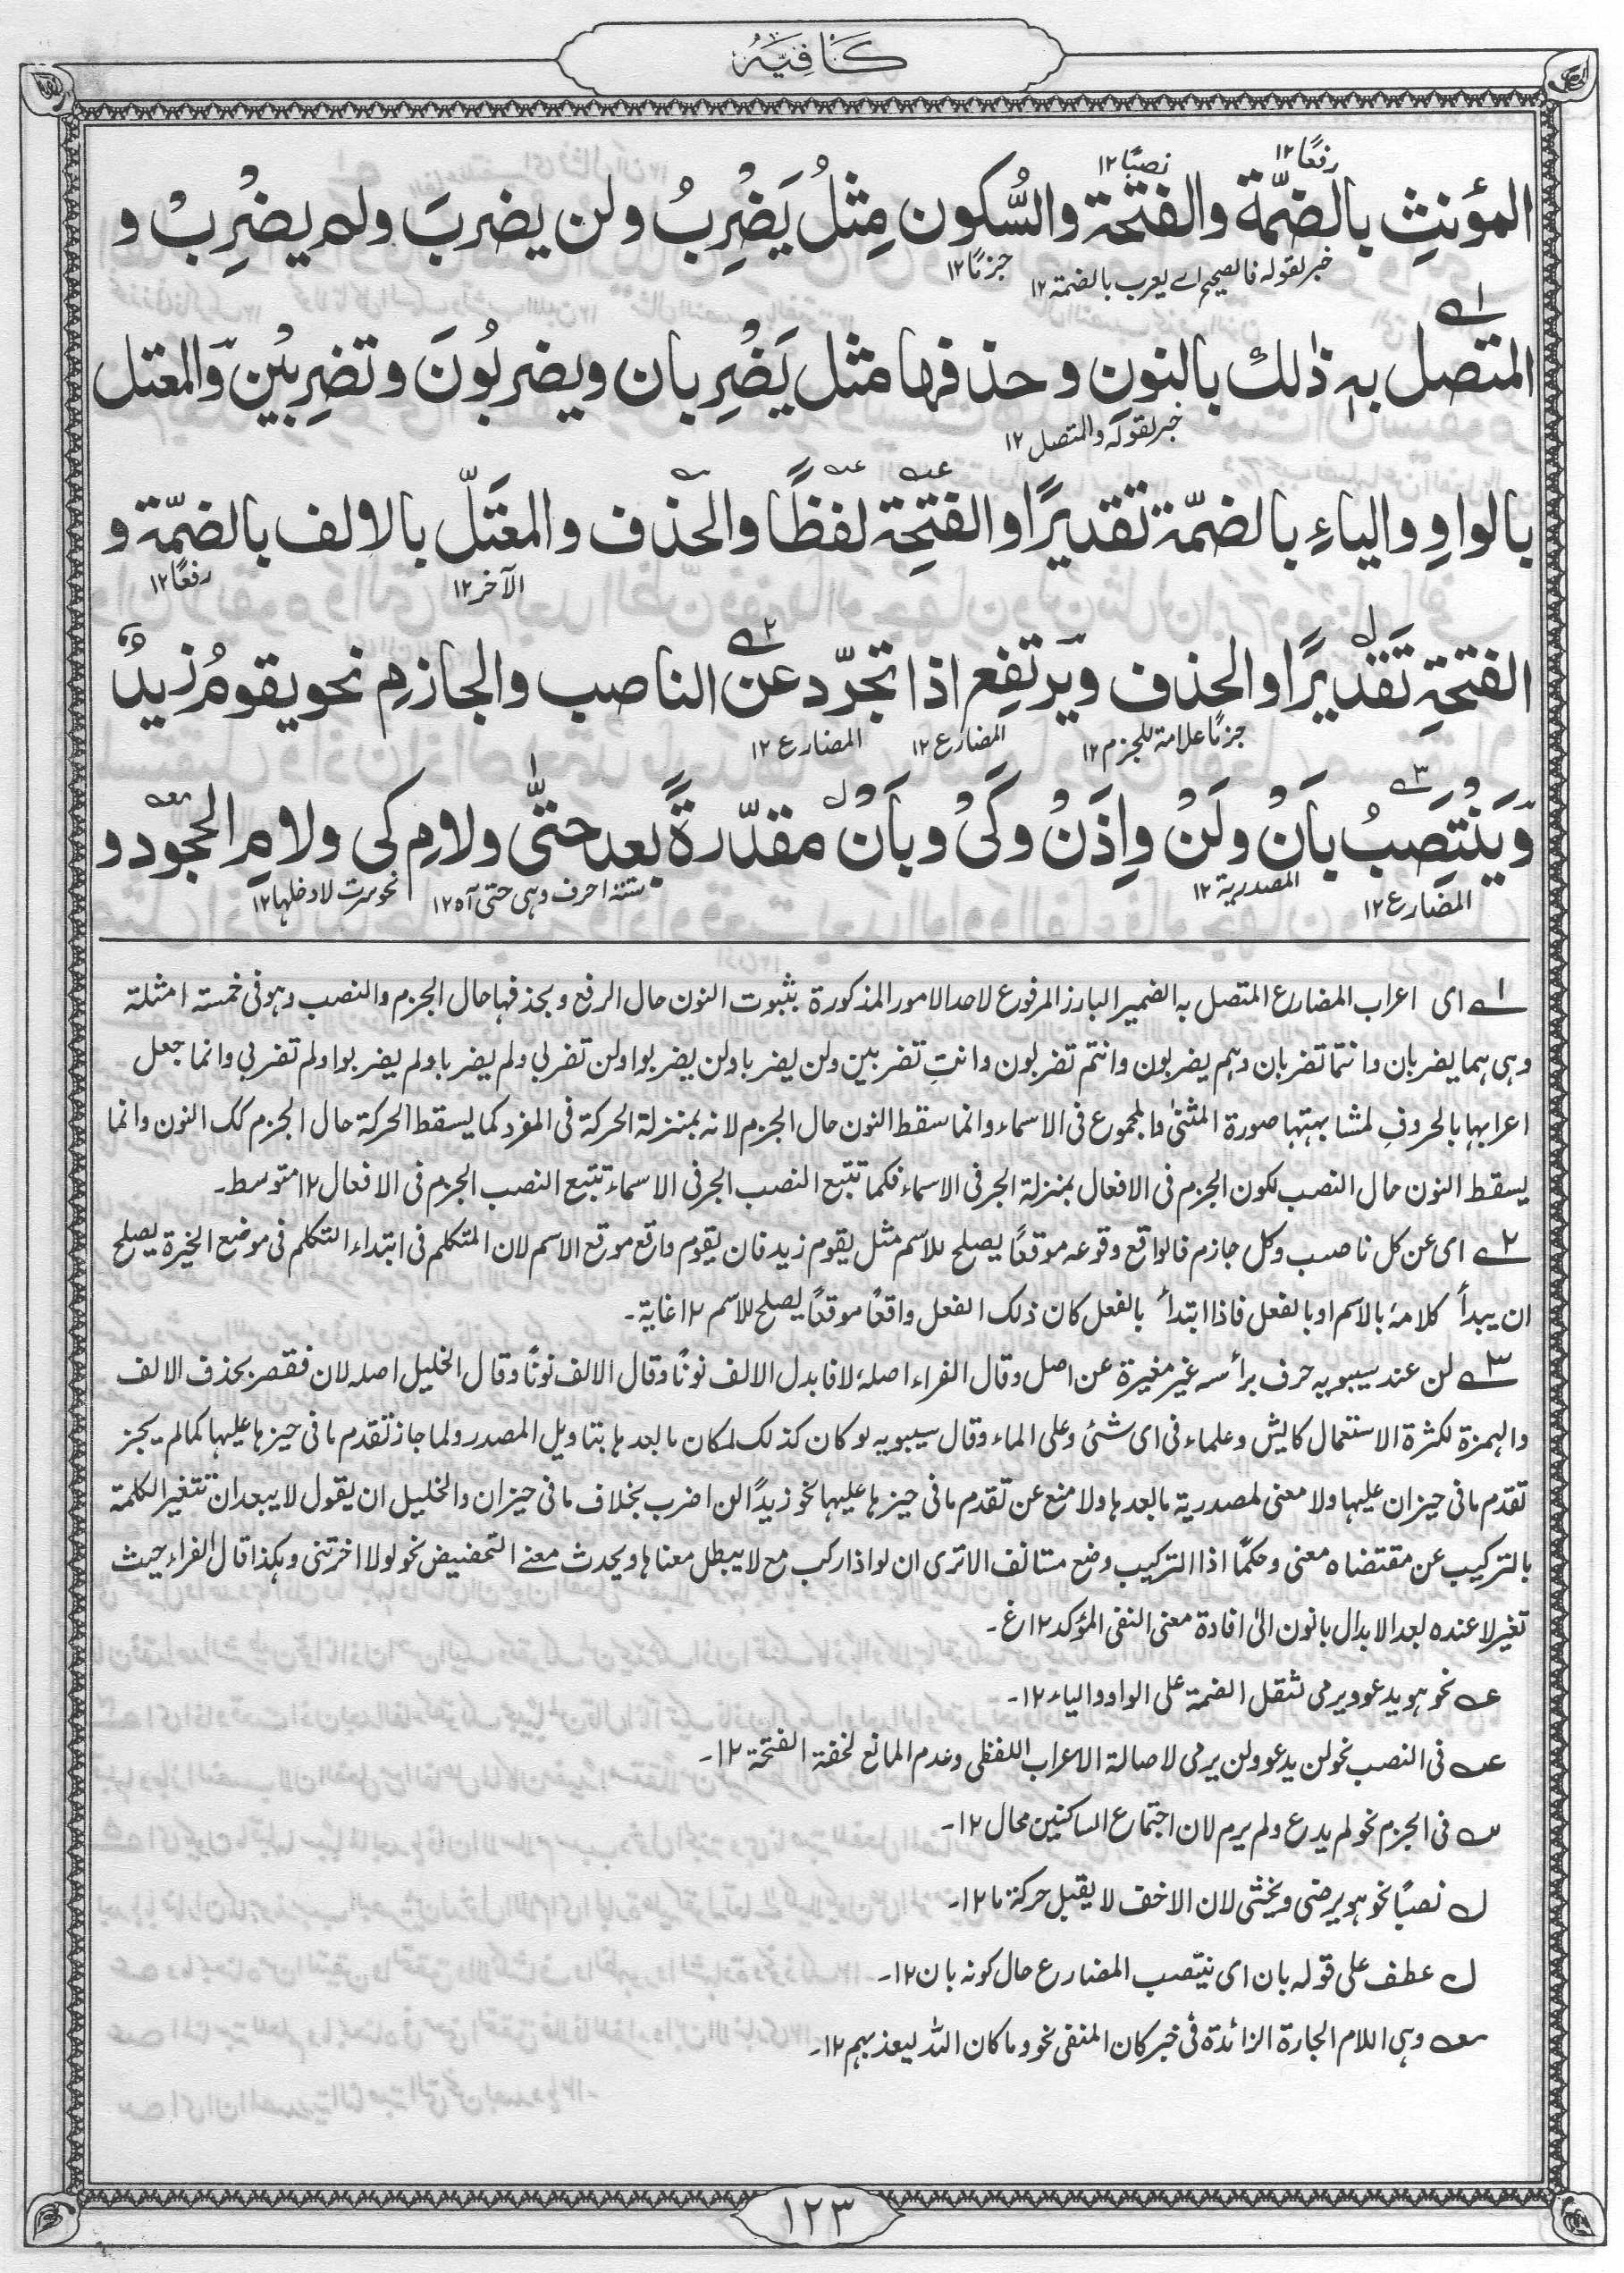 كَافِيَه
رفعًا۱۲ نصبًا۱۲
المؤنثِ بالضمّة والفتحة والسُّكون مِثلُ يَضْرِبُ ولن يضربَ ولم يضْرِبْ و
خبر لقوله فالصحیح اے یعرب بالضمة۱۲ جزمًا۱۲
المتصل بهٖ ذٰلك بالنونِ وحذفها مثل يَضْرِبان ويضربُونَ وتضرِبِيْنَ والمعتل
خبر لقوله والمتصل۱۲
بالواوِ والياءِ بالضمّة تقديرًا والفتحِة لفظًا والحذف والمعتَلّ بالالف بالضمّة و
الآخر۱۲ رفعًا۱۲
الفتحةِ تَقديرًا والحذف ويَرتفِع اذا تجرّد عن الناصب والجازمِ نحو يقومُ زيدٌ
جزمًا علامة للجزم۱۲ المضارع۱۲ المضارع۱۲
وَّيَنْتَصِبُ بِاَنْ ولَنْ وِاِذَنْ وكَيْ وبِاَنْ مقدّرةً بعد حتّٰى ولامِ كي ولامِ الجحود و
المضارع۱۲ المصدرية۱۲ ستة احرف وہی حتی آہ۱۲ نحو سرت لادخلها۱۲
۱ے ای اعراب المضارع المتصل به الضمير البارز المرفوع لاحد الامور المذكورة بثبوت النون حال الرفع وبحذفها حال الجزم والنصب وہو فی خمسة امثلة
وہی ہما يضربان وانتما تضربان وہم يضربون وانتم تضربون وانتِ تضربين ولن يضربا ولن يضربوا ولن تضربی ولم يضربا ولم يضربوا ولم تضربی وانما جعل
اعرابها بالحروف لمشابهتها صورة المثنٰى والمجموع فی الاسماء وانما سقط النون حال الجزم لانه بمنزلة الحركة فی المفرد كما يسقط الحركة حال الجزم كك النون وانما
يسقط النون حال النصب لكون الجزم فی الافعال بمنزلة الجر فی الاسماء فكما تتبع النصب الجر فی الاسماء تتبع النصب الجزم فی الافعال ۱۲ متوسط۔
۲ے ای عن كل ناصب وكل جازم فالواقع وقوعه موقعًا يصلح للاسم مثل يقوم زيد فان يقوم واقع موقع الاسم لان المتكلم فی ابتداء التكلم فی موضع الخيرة يصلح
ان يبدأ كلامهٗ بالاسم او بالفعل فاذا ابتدأ بالفعل كان ذلك الفعل واقعًا موقعًا يصلح للاسم ۱۲ غاية۔
۳ے لن عند سيبويه حرف برأسه غير مغيرة عن اصل وقال الفراء اصلهٗ لا فابدل الالف نونًا وقال الالف نونًا وقال الخليل اصله لان فقصر بحذف الالف
والهمزة لكثرة الاستعمال كاليش وعلماء فی ای شئی وعلی الماء وقال سيبويه لو كان كذلك لكان ما بعدها بتاويل المصدر ولما جاز تقدم ما فی حيزها عليها كما لم يجز
تقدم ما فی حيز ان عليها ولا معنی لمصدرية ما بعدها ولا منع عن تقدم ما فی حيزها عليها نحو زيدًا لن اضرب بخلاف ما فی حيز ان والخليل ان يقول لا يبعد ان تتغير الكلمة
بالتركيب عن مقتضاه معنی وحكمًا اذا التركيب وضع مستانف الا ترى ان لو اذا ركب مع لا يبطل معناها ويحدث معنے التحضيض نحو لولا اخرتنی وہكذا قال الفراء حيث
تغير لا عنده بعد الابدال بالنون الیٰ افادة معنی النفی المؤكد ۱۲ غ۔
عہ نحو هو يدعو ويرمی لثقل الضمة علی الواو والياء ۱۲۔
عہ فی النصب نحو لن يدعو ولن يرمی لاصالة الاعراب اللفظی وعدم المانع لخفة الفتحة ۱۲۔
سہ فی الجزم نحو لم يدع ولم يرم لان اجتماع الساكنين محال ۱۲۔
لہ نصبًا نحو هو يرضی ويخشی لان الاخف لا يقبل حركة ما ۱۲۔
لہ عطف علی قوله بان ای ينتصب المضارع حال كونه بان ۱۲۔
معہ وہی اللام الجارة الزائدة فی خبر كان المنفی نحو وما كان الله ليعذبهم ۱۲۔
۱۲۳